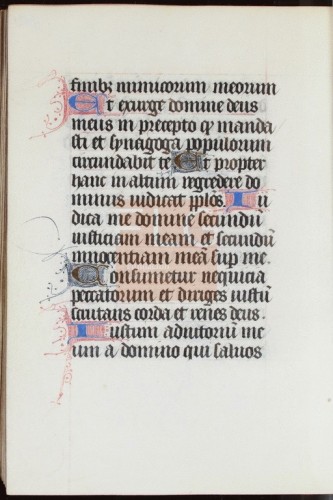 finibȝ inimicorum meorum
Et exurge domine deus
meus in precepto qȝ manda
sti et synagoga populorum
circundabit te Et propter
hanc in altum regredere do
minus iudicat pp̄los. Iu
dica me domine secundū
iusticiam meam et secundū
innocentiam meā sup me.
Consumetur nequicia
peccatorum et diriges iustū
scrutans corda et renes deus.
Iustum adiutoriū me
um a domino qui saluos